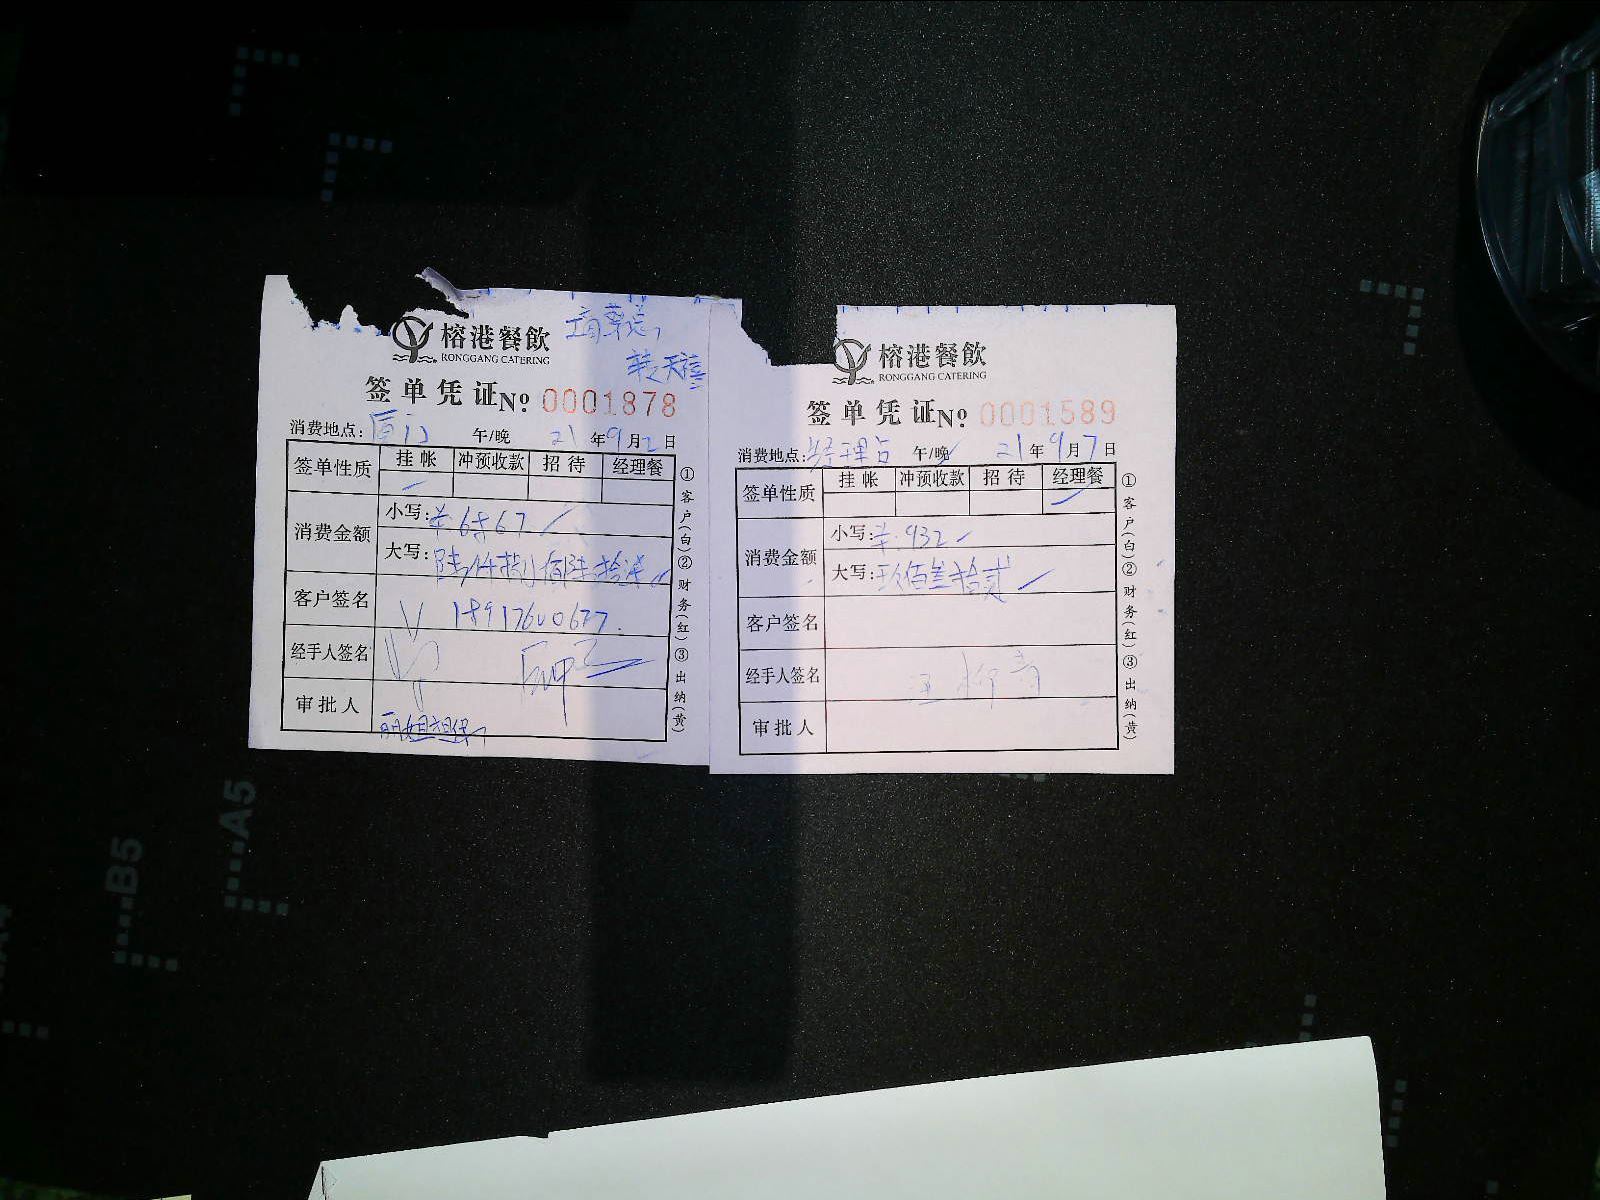 榕港餐飲
RONGGANG CATERING
转天禧
签单凭证No 0001878
消费地点: 厦门 午/晚 21年9月2日
签单性质 挂帐 冲预收款 招待 经理餐
消费金额 小写: ¥6867
大写: 陆仟捌佰陆拾柒
客户签名 18917600677.
经手人签名
审批人
①客户(白)②财务(红)③出纳(黄)
榕港餐飲
RONGGANG CATERING
签单凭证No 0001589
消费地点: 经理台 午/晚 21年9月7日
签单性质 挂帐 冲预收款 招待 经理餐
消费金额 小写: ¥.932
大写: 玖佰叁拾贰
客户签名
经手人签名
审批人
①客户(白)②财务(红)③出纳(黄)
A5
B5